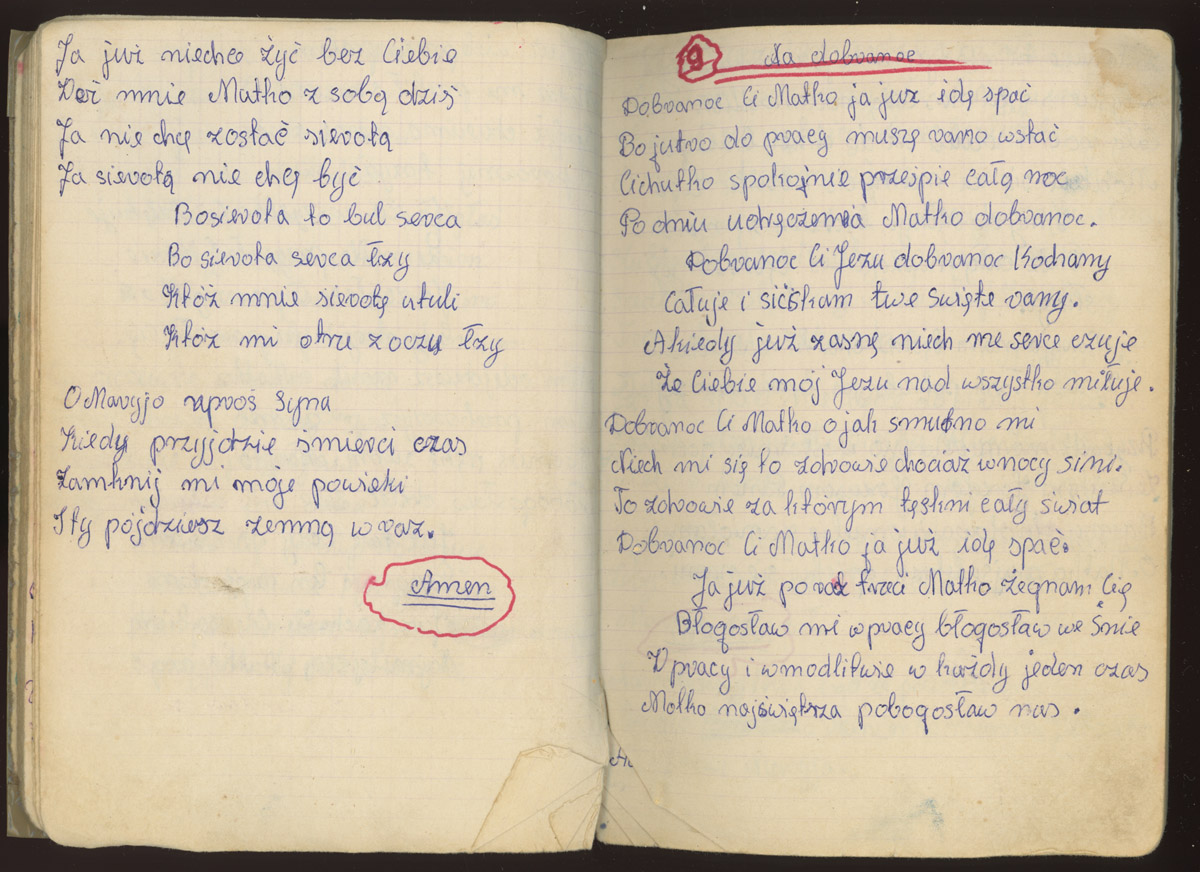 Ja już niechce żyć bez Ciebie
Weź mnie Matko z sobą dziś
Ja nie chcę zostać sierotą
Ja sierotą nie chcę być
Bo sierota to bul serca
Bo sierota serca łzy
Któż mnie sierotę utuli
Któż mi otrze z oczy łzy
O Maryjo uproś Syna
Kiedy przyjdzie śmierci czas
Zamknij mi moje powieki
I ty pójdziesz zemną w raz.
Amen
9 Na dobranoc
Dobranoc Ci Matko ja już idę spać
Bo jutro do pracy muszę rano wstać
Cichutko spokojnie prześpie całą noc
Po dniu udręczenia Matko dobranoc.
Dobranoc Ci Jezu dobranoc Kochany
Całuje i siciskam twe święte rany.
A kiedy już zasnę niech me serce czuje
Że Ciebie mój Jezu nad wszystko miłuje.
Dobranoc Ci Matko o jak smutno mi
Niech mi się to zdrowie chociaż w nocy sini.
To zdrowie za którym tęskni cały świat
Dobranoc Ci Matko ja już idę spać.
Ja już po raz trzeci Matko żegnam Cię
Błogosław mi w pracy błogosław we śnie
W pracy i w modlitwie w każdy jeden czas
Matko najświętrza pobogosław nas.